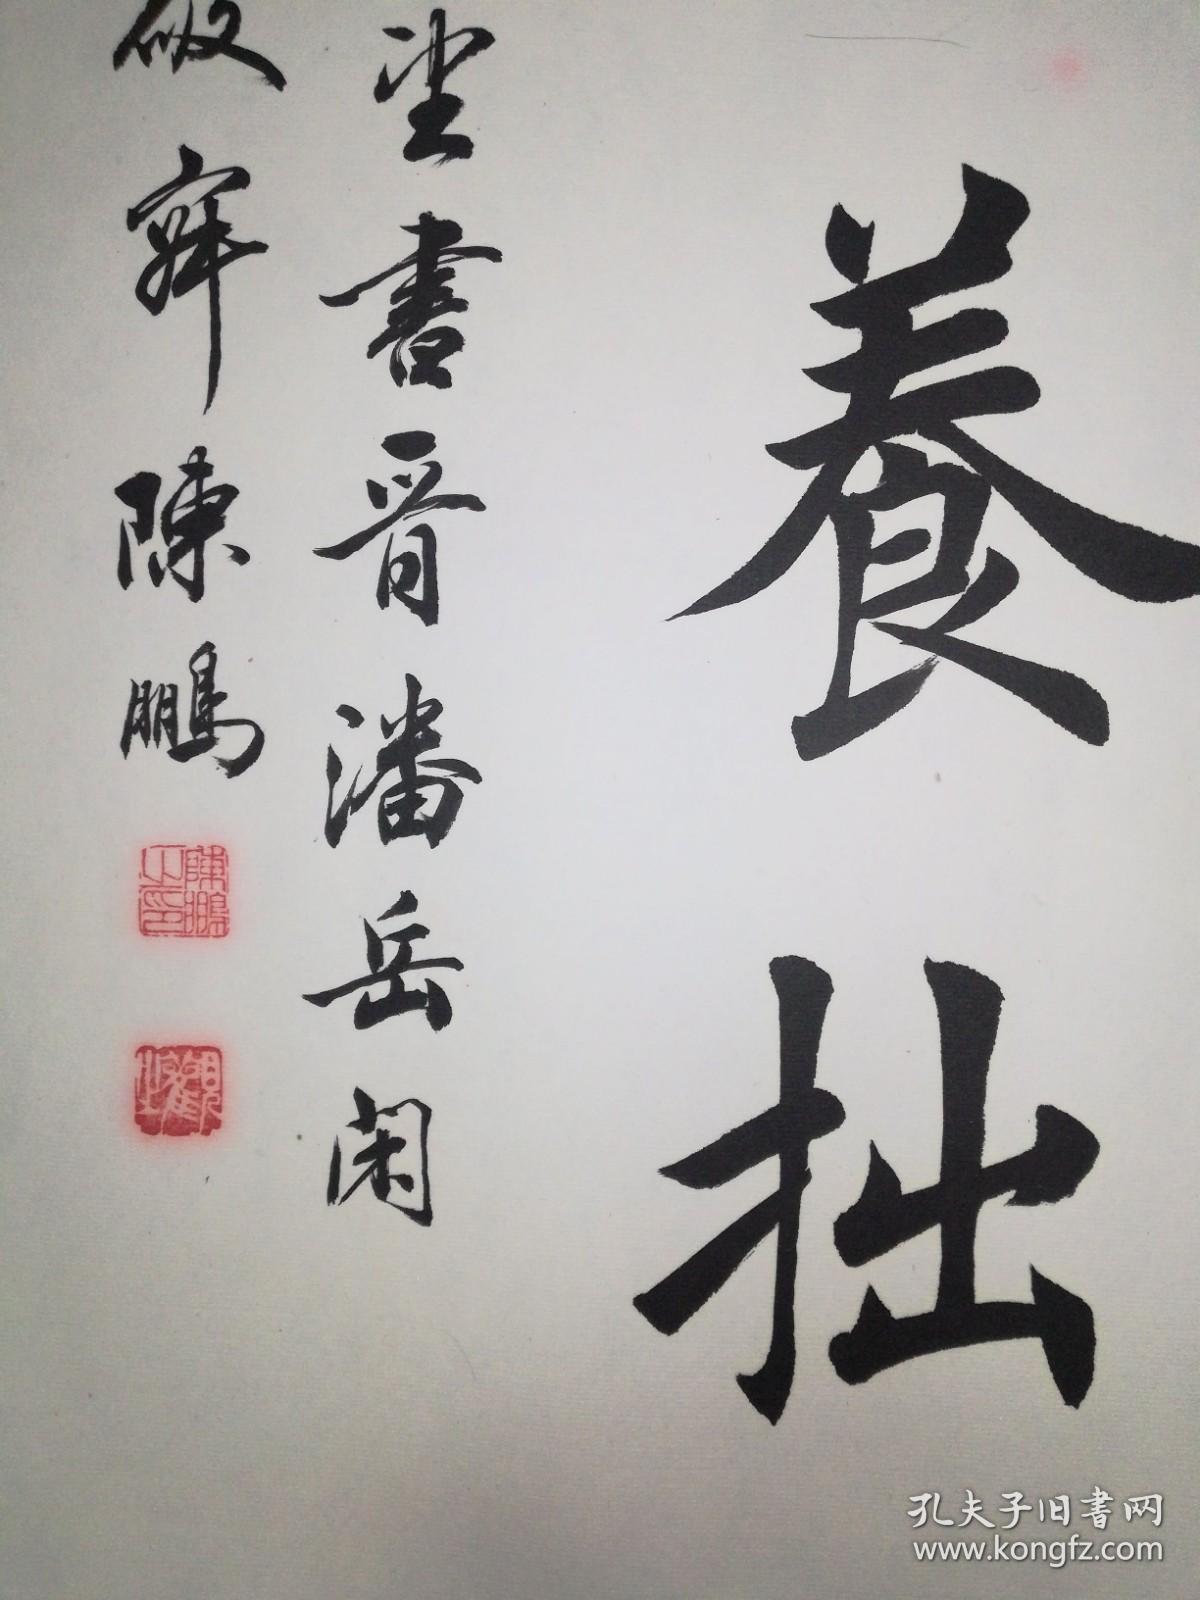 養拙
望書晉潘岳閑
陳鵬
陳鵬之印
孔夫子旧书网
www.kongfz.com